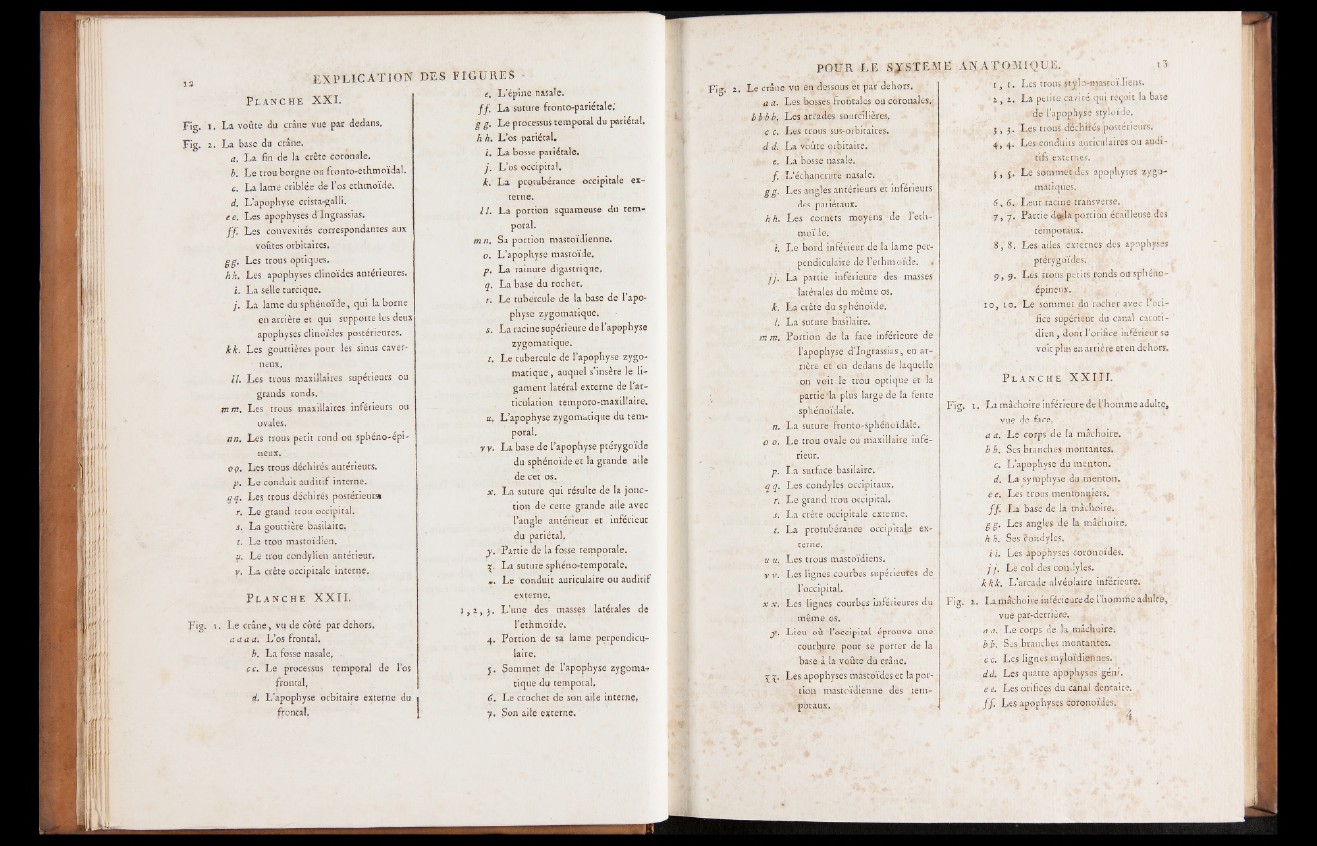 12
EXPLICATION DES FIGURES
PLANCHE XXI.
Fig. 1. La voûte du crâne vue par dedans.
Fig. 2. La base du crâne.
a. La fin de la crête coronale.
b. Le trou borgne ou fronto-ethmoïdal.
c. La lame criblée de l'os ethmoïde.
d. L'apophyse crista-galli.
ee. Les apophyses d'Ingrassias.
ff. Les convexités correspondantes aux
voûtes orbitaires.
gg. Les trous optiques.
hh. Les apophyses clinoïdes antérieures.
i. La selle turcique.
j. La lame du sphénoïde, qui la borne
en arrière et qui supporte les deux
apophyses clinoïdes postérieures.
kk. Les gouttières pour les sinus caver-
neux.
ll. Les trous maxillaires supérieurs ou
grands ronds.
mm. Les trous maxillaires inférieurs ou
ovales.
nn. Les trous petit rond ou sphéno-épi-
neux.
oo. Les trous déchirés antérieurs.
p. Le conduit auditif interne.
qq. Les trous déchirés postérieurs
r. Le grand trou occipital.
s. La gouttière basilaire.
t. Le trou mastoïdien.
u. Le trou condylien antérieur.
v. La crête occipitale interne.
PLANCHE XXII.
Fig. 1. Le crâne, vu de côté par dehors.
aaaa. L'os frontal.
b. La fosse nasale.
cc. Le processus temporal de l'os
frontal.
d. L'apophyse orbitaire externe du
frontal.
e. L'épine nasale.
ff. La suture fronto-pariétale.
gg. Le processus temporal du pariétal.
hh. L'os pariétal.
i. La bosse pariétale.
j. L'os occipital.
k. La protubérance occipitale ex-
terne.
ll. La portion squameuse du tem-
poral.
mn. Sa portion mastoïdienne.
o. L'apophyse mastoïde.
p. La rainure digastrique.
q. La base du rocher.
r. Le tubercule de la base de l'apo-
physe zygomatique.
s. La racine supérieure de l'apophyse
zygomatique.
t. Le tubercule de l'apophyse zygo-
matique, auquel s'insère le li-
gament latéral externe de l'ar-
ticulation temporo-maxillaire.
u. L'apophyse zygomatique du tem-
poral.
vv. La base de l'apophyse ptérygoïde
du sphénoïde et la grande aile
de cet os.
x. La suture qui résulte de la jonc-
tion de cette grande aile avec
l'angle antérieur et inférieur
du pariétal.
y. Partie de la fosse temporale.
z. La suture sphéno-temporale.
Le conduit auriculaire ou auditif
externe.
1, 2, 3. L'une des masses latérales de
l'ethmoïde.
4. Portion de sa lame perpendicu-
laire.
5. Sommet de l'apophyse zygoma-
tique du temporal.
6. Le crochet de son aile interne.
7. Son aile externe.
POUR LE SYSTEME ANATOMIQUE.
13
Fig. 2. Le crâne vu en dessous et par dehors.
aa. Les bosses frontales ou coronales.
bbbb. Les arcades sourcilières.
c c. Les trous sus-orbitaires.
d d. La voûte orbitaire.
e. La bosse nasale.
f. L'échancrure nasale.
gg. Les angles antérieurs et inférieurs
des pariétaux.
hh. Les cornets moyens de l'eth-
moïde.
i. Le bord inférieur de la lame per-
pendiculaire de l'ethmoïde.
jj. La partie inférieure des masses
latérales du même os.
k. La crête du sphénoïde.
l. La suture basilaire.
mm. Portion de la face inférieure de
l'apophyse d'Ingrassias, en ar-
rière et en dedans de laquelle
on voit le trou optique et la
partie la plus large de la fente
sphénoïdale.
n. La suture fronto-sphénoïdale.
o o. Le trou ovale ou maxillaire infé-
rieur.
p. La surface basilaire.
qq. Les condyles occipitaux.
r. Le grand trou occipital.
s. La crête occipitale externe.
t. La protubérance occipitale ex-
terne.
u u. Les trous mastoïdiens.
v v. Les lignes courbes supérieures de
l'occipital.
x x. Les lignes courbes inférieures du
même os.
y. Lieu où l'occipital éprouve une
courbure pour se porter de la
base à la voûte du crâne.
zz. Les apophyses mastoïdes et la por-
tion mastoïdienne des tem-
poraux.
1, 1. Les trous stylo-mastoïdiens.
2, 2. La petite cavité qui reçoit la base
de l'apophyse styloïde.
3, 3. Les trous déchirés postérieurs.
4, 4. Les conduits auriculaires ou audi-
tifs externes.
5, 5. Le sommet des apophyses zygo-
matiques.
6, 6. Leur racine transverse.
7, 7. Partie de la portion écailleuse des
temporaux.
8, 8. Les ailes externes des apophyses
ptérygoïdes.
9, 9. Les trous petits ronds ou sphéno-
épineux.
10, 10. Le sommet du rocher avec l'ori-
fice supérieur du canal caroti-
dien, dont l'orifice inférieur se
voit plus en arrière et en dehors.
PLANCHE XXIII.
Fig. 1. La mâchoire inférieure de l'homme adulte,
vue de face.
a a. Le corps de la mâchoire.
b b. Ses branches montantes.
c. L'apophyse du menton.
d. La symphyse du menton.
e e. Les trous mentonniers.
ff. La base de la mâchoire.
gg. Les angles de la mâchoire.
h h. Ses condyles.
i i. Les apophyses coronoïdes.
jj. Le col des condyles.
kkk. L'arcade alvéolaire inférieure.
Fig. 2. La mâchoire inférieure de l'homme adulte,
vue par-derrière.
a a. Le corps de la mâchoire.
b b. Ses branches montantes.
c c. Les lignes myloïdiennes.
dd. Les quatre apophyses géni.
e e. Les orifices du canal dentaire.
ff. Les apophyses coronoïdes.
4